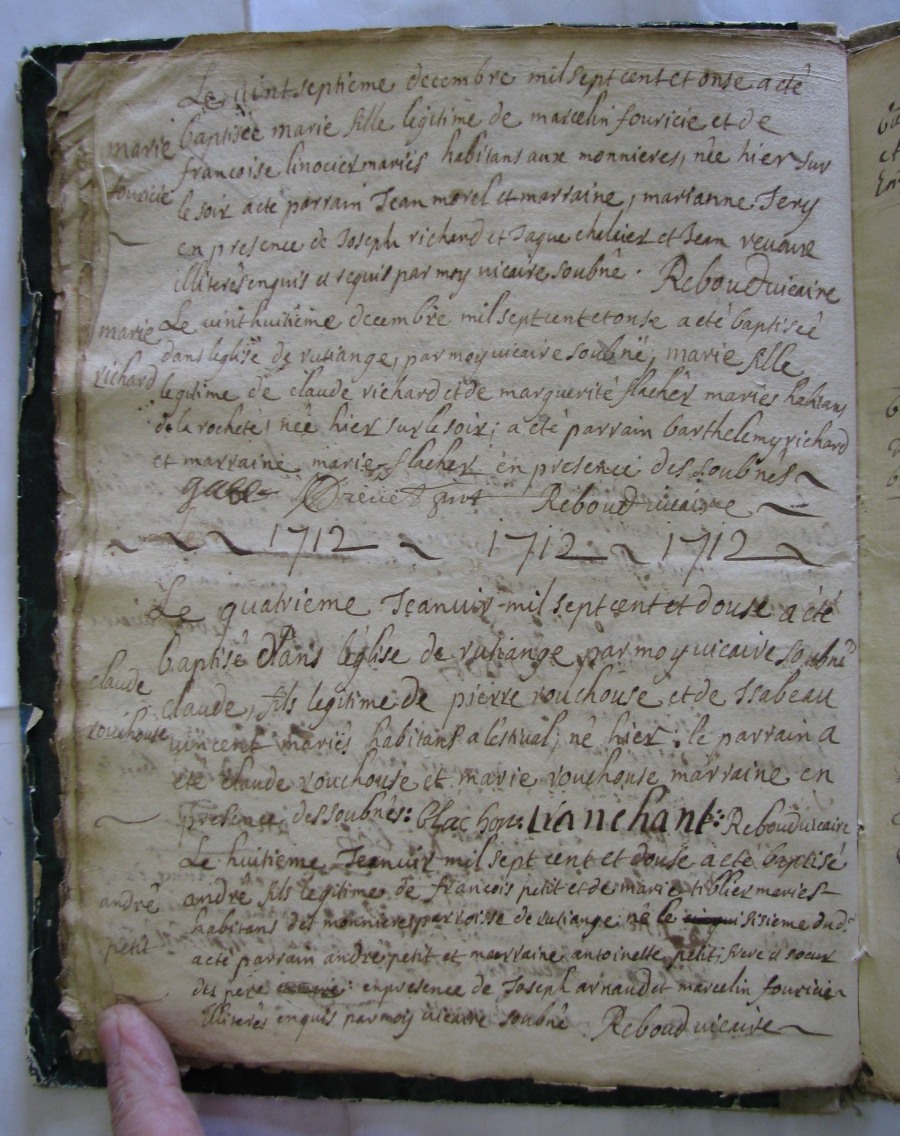 Le vint septieme decembre mil sept cent et onse a eté
marie baptisée marie fille legitime de marcelin fouricie et de
francoise linocier mariés habitans aux monnieres, née hier sur
fouricie le soir a eté parrain Jean morel et marraine, marianne Sery
en presence de Joseph richard et Jaque chelvier et Jean revouire
illiterés enquis et requis par moy vicaire soubné. Reboud vicaire
marie Le vint huitieme decembre mil sept cent et onse a eté baptiseé
dans leglise de rutiange, par moy vicaire soubné, marie fille
richard legitime de claude richard et de marguerité flacher mariés habitans
de la rocheté, née hier sur le soir; a eté parrain barthelemy richard
et marraine marie flacher en presence des soubnés
Reboud vicaire
1712 1712 1712
Le quatrieme Jeanvir mil sept cent et douse a eté
baptisé dans léglise de rutiange par moy vicaire soubné
claude claude, fils legitime de pierre rouchouse et de Isabeau
rouchouse vincent mariés habitans a lestival, né hier; le parrain a
eté claude rouchouse et marie rouchouse marraine en
presence des soubnés: blachon: Lianchant: Reboud vicaire
Le huitieme Jeanvir mil sept cent et douse a eté baptisé
andré andre fils legitime de francois petit et de marie tiblier mariés
habitans des monnieres parroisse de rutiange né le sisieme dud.
petit a eté parrain andre petit et marraine antoinette petit, frere et soeur
du pere en presence de Joseph arnaud et marcelin fouricie
illiterés enquis par moy vicaire soubné Reboud vicaire